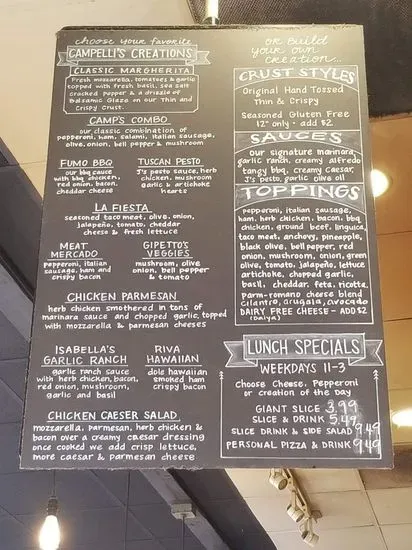 choose your favorite
CAMPELLI'S CREATIONS
CLASSIC MARGHERITA
Fresh mozzarella, tomatoes & garlic
topped with fresh basil, sea salt
cracked pepper & a drizzle of
Balsamic Glaze on our Thin and
Crispy Crust.
CAMP'S COMBO
our classic combination of
pepperoni, ham, salami, italian sausage,
olive, onion, bell pepper & mushroom
FUMO BBQ
our bbq sauce
with bbq chicken,
red onion, bacon,
cheddar cheese
TUSCAN PESTO
J's pesto sauce, herb
chicken, mushroom
garlic & artichoke
hearts
LA FIESTA
seasoned taco meat, olive, onion,
jalapeño, tomato, cheddar
cheese & fresh lettuce
MEAT
MERCADO
pepperoni, italian
sausage, ham and
crispy bacon
GIPETTO'S
VEGGIES
mushroom, olive
onion, bell pepper
& tomato
CHICKEN PARMESAN
herb chicken smothered in tons of
marinara sauce and chopped garlic, topped
with mozzarella & parmesan cheeses
ISABELLA'S
GARLIC RANCH
garlic ranch sauce
with herb chicken, bacon,
red onion, mushroom,
garlic and basil
RIVA
HAWAIIAN
dole hawaiian
smoked ham
crispy bacon
CHICKEN CAESER SALAD
mozzarella, parmesan, herb chicken &
bacon over a creamy caesar dressing
once cooked we add crisp lettuce,
more caesar & parmesan cheese
or build
your own
creation...
CRUST STYLES
Original Hand Tossed
Thin & Crispy
Seasoned Gluten Free
12" only - add $2
SAUCES
our signature marinara,
garlic ranch, creamy alfredo
tangy bbq, creamy Caesar,
J's pesto, garlic olive oil
TOPPINGS
pepperoni, italian sausage,
ham, herb chicken, bacon, bbq
chicken, ground beef, linguica,
taco meat, anchovy, pineapple,
black olive, bell pepper, red
onion, mushroom, onion, green
olive, tomato, jalapeño, lettuce
artichoke, chopped garlic,
basil, cheddar, feta, ricotta,
parm-romano cheese blend
cilantro, arugala, avocado
DAIRY FREE CHEESE - ADD $2
(Daiya)
LUNCH SPECIALS
WEEKDAYS 11-3
Choose Cheese, Pepperoni
or creation of the day
GIANT SLICE 3.99
SLICE & DRINK 5.49
SLICE DRINK & SIDE SALAD 9.49
PERSONAL PIZZA & DRINK 9.49